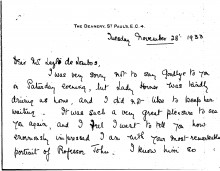 THE DEANERY, ST PAUL'S, E.C.4.
Tuesday November 28th 1933
Dear Mr
I was very sorry not to say Goodbye to you
on Saturday evening, but Lady was kindly
driving us home, and I did not like to keep her
waiting. It was such a very great pleasure to see
you again, and I feel I want to tell you how
enormously impressed I am with your most remarkable
portrait of Professor John. I know him so